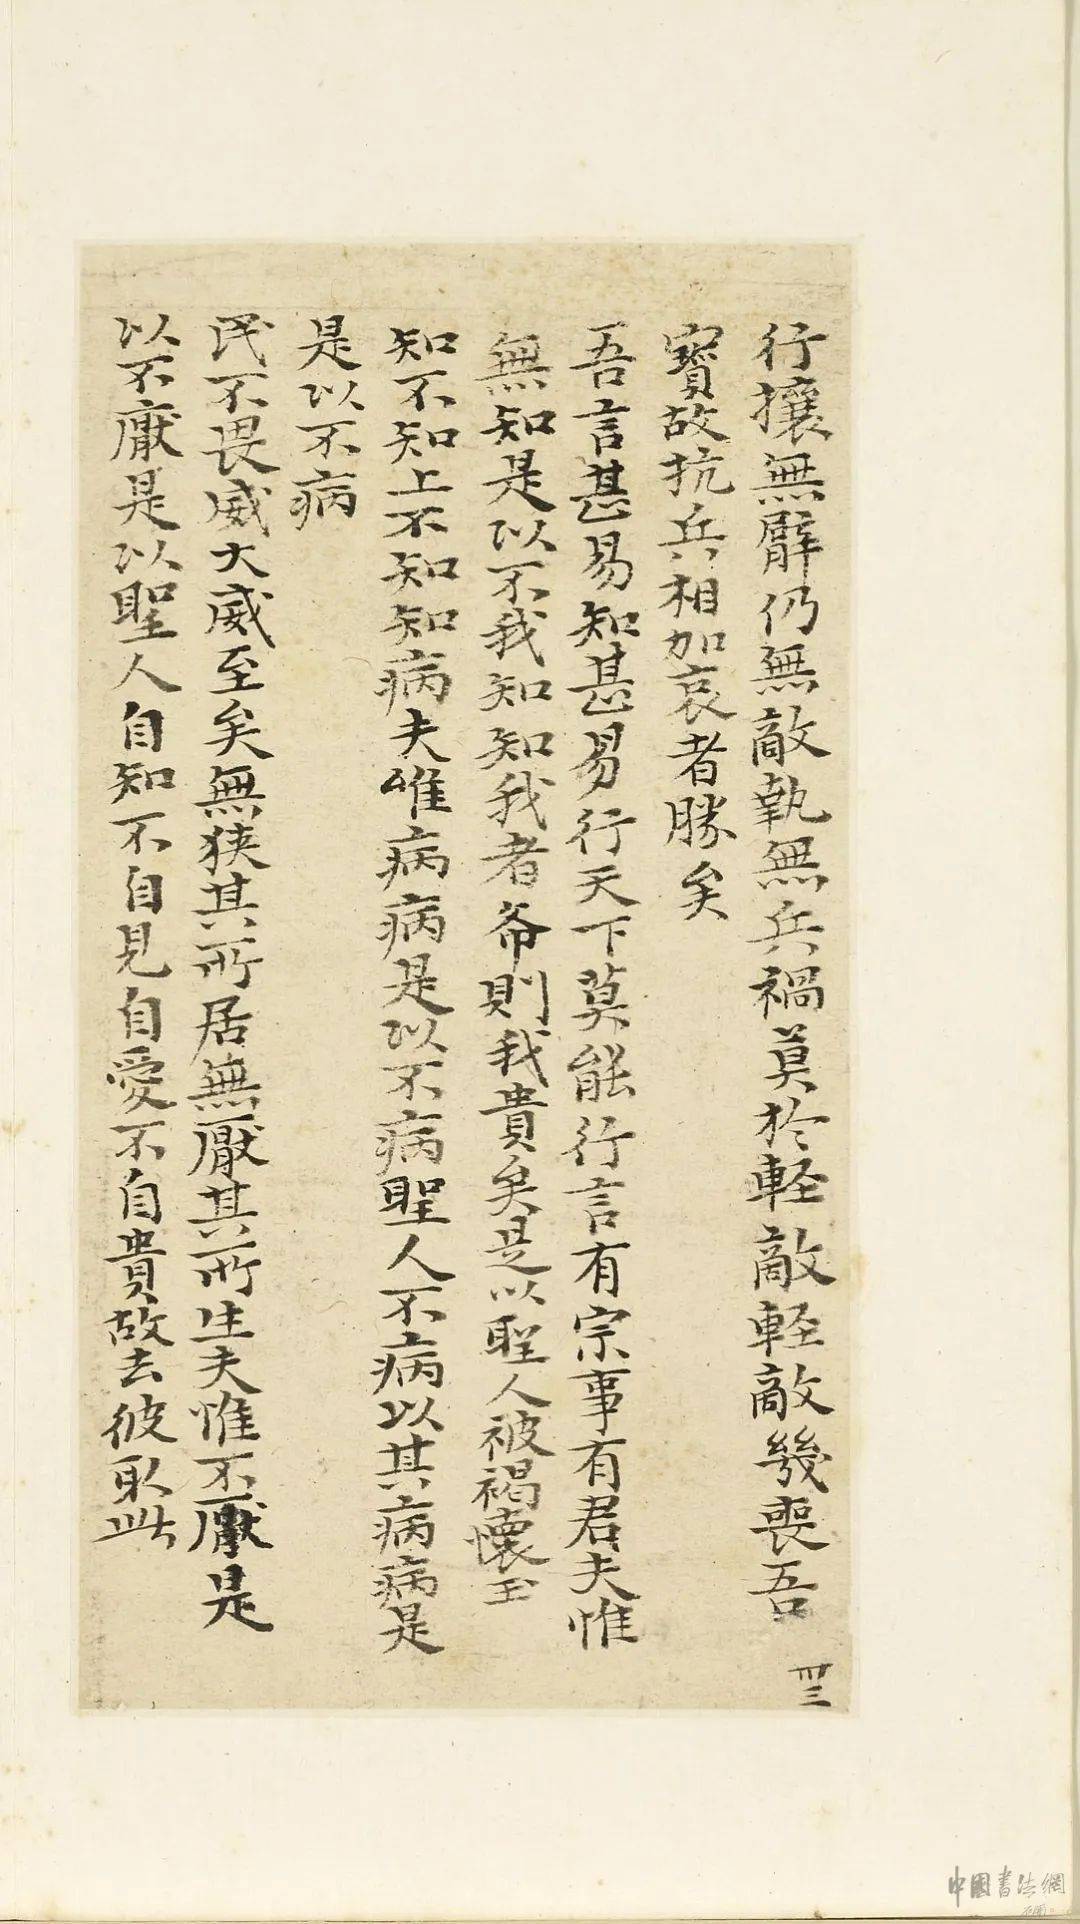 行攘無臂仍無敵執無兵禍莫於軽敵軽敵幾喪吾
寶故抗兵相加哀者勝矣
吾言甚易知甚易行天下莫能行言有宗事有君夫惟
無知是以不我知知我者希則我貴矣是以聖人被褐懷玉
知不知上不知知病夫唯病病是以不病聖人不病以其病病是
是以不病
民不畏威大威至矣無狭其所居無厭其所生夫惟不厭是
以不厭是以聖人自知不自見自愛不自貴故去彼取此
卌三
中國書法網